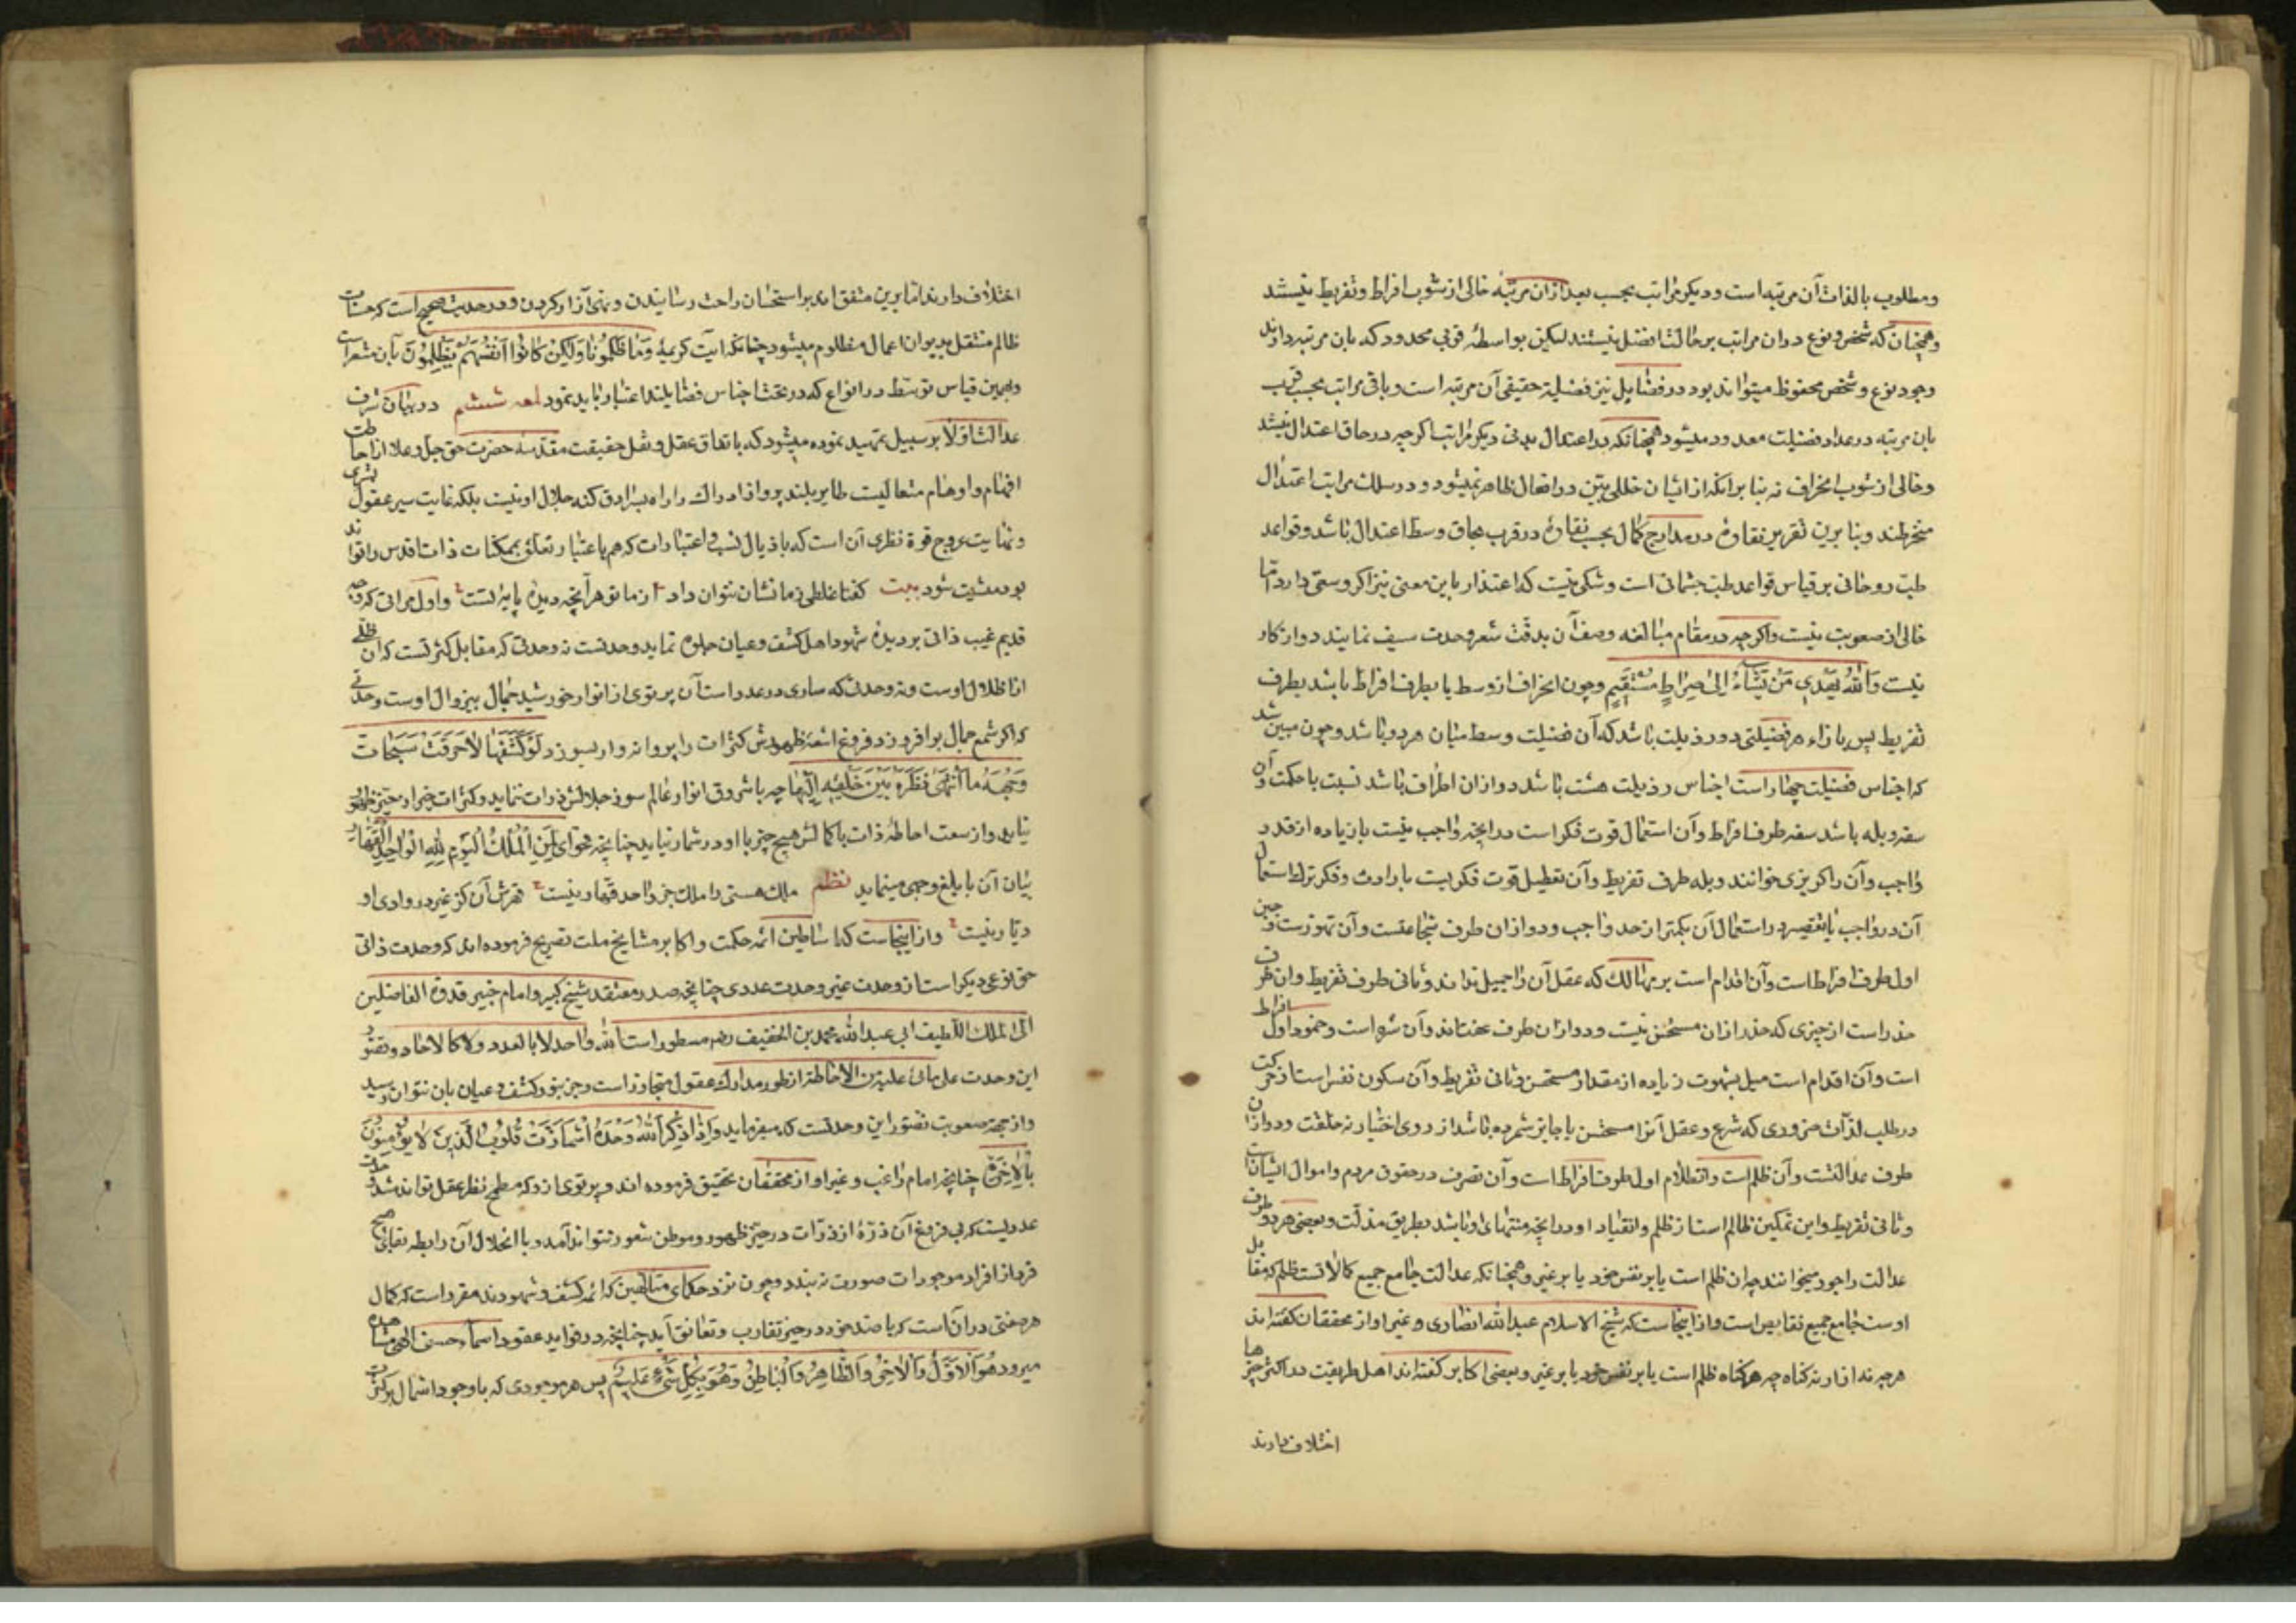 ومطلوب بالذات آن مرتبه است و دیکر مراتب بحسب بعد ازان مرتبه خالی از شوب افراط و تفریط نیستند
وهمچنان که شخص و نوع دران مراتب بر حالت افضل نیستند لیکن بواسطهٔ قربی محدود که بان مرتبه دارند
وجود نوع و شخص محفوظ میتواند بود در فضایل نیز فضیلة حقیقی آن مرتبه است و باقی مراتب بحسب قرب
بان مرتبه در عداد فضیلت معدود میشود همچنانکه در اعتدال بدنی دیکر مراتب اکرچه در حاق اعتدال نیستند
و خالی از شوب انحراف نه بنا برانکه از ایشان خللی بین در افعال ظاهر نمیشود در سلک مراتب اعتدال
منخرطند و بنا برین تقریر تفاوت در مدارج کمال بحسب تفاوت در قرب بحاق وسط اعتدال باشد و قواعد
طب روحانی بر قیاس قواعد طب جسمانی است و شکی نیست که اعتذار باین معنی نیز اکر وسعتی دارد اما
خالی از صعوبت نیست و اکرچه در مقام مبالغه وصف آن بدقت شعر و حدت سیف نمایند دور از کار
نیست وَاللهُ یَهْدِی مَنْ یَشَاءُ اِلیٰ صِرَاطٍ مُسْتَقِیمٍ و چون انحراف از وسط یا بطرف افراط باشد یا بطرف
تفریط پس بازاء هر فضیلتی دو رذیلت باشد که آن فضیلت وسط میان هر دو باشد و چون مبین شد
که اجناس فضیلت چهار است اجناس رذیلت هشت باشد دو ازان اطراف باشد نسبت با حکمت و آن
سفه و بله باشد سفه طرف افراط و آن استعمال قوت فکر است در انچه واجب نیست یا زیاده از قدر
واجب و آن را کربزی خوانند و بله طرف تفریط و آن تعطیل قوت فکریست بارادت و فکر ترک استعمال
آن در واجب یا تقصیر در استعمال آن بکمتر از حد واجب و دو ازان طرف شجاعتست و آن تهور است و جبن
اول طرف افراط است و آن اقدام است بر مهالک که عقل آن را جمیل نداند و ثانی طرف تفریط و ان ظرف
حذر است از چیزی که حذر ازان مستحسن نیست و دو ازان طرف عفتاند و آن شره است و خمود اول افراط
است و آن اقدام است میل بشهوت زیاده از مقدار مستحسن و ثانی تفریط و آن سکون نفس است از حرکت
در طلب لذات ضروری که شرع و عقل آنرا مستحسن یا جایز شمرده باشد از روی اختیار نه خلقت و دو ازان
طرف عدالتست و آن ظلم است و انظلام اول طرف افراط است و آن تصرف در حقوق مردم و اموال ایشان
و ثانی تفریط و این تمکین ظالم است از ظلم و انقیاد او در انچه منتهای او باشد بطریق مذلت و بعضی هر دو طرف
عدالت را جور میخوانند چه ان ظلم است یا بر نفس خود یا بر غیر و همچنانکه عدالت جامع جمیع کمالاتست ظلم که مقابل
اوست جامع جمیع نقایص است و از اینجاست که شیخ الاسلام عبدالله انصاری و غیر او از محققان کفته اند
هرچه نه ازار نه کناه چه هر کناه ظلم است یا بر نفس خود یا بر غیر و بعضی اکابر کفته اند اهل طریقت در اکثر چیزها
اختلاف دارند
اختلاف دارند اما برین متفق اند بر استحسان راحت رسانیدن و نهی آزار کردن و در حدیث صحیح است که حسنات
ظالم منتقل بدیوان اعمال مظلوم میشود چنانکه ایت کریمهٔ وَمَا ظَلَمُونَا وَلٰکِنْ کَانُوا اَنْفُسَهُمْ یَظْلِمُونَ بآن مشعر است
و بهمین قیاس توسط در انواع که در تحت اجناس فضایلند اعتبار باید نمود لمعه ششم در بیان شرف
عدالت اولا بر سبیل تمهید نموده میشود که باتفاق عقل و نقل حقیقت مقدسهٔ حضرت حق جل و علا از احاطت
افهام و اوهام متعالیست طایر بلند پرواز ادراک را راه بسرادق کنه جلال او نیست بلکه غایت سیر عقول بشری
و نهایت عروج قوة نظری آن است که باذیال نسب و اعتبارات که هم باعتبار تعلق بممکنات ذات اقدس را تواند
بود متشبث شود بیت کفتا غلطی زما نشان نتوان داد از ما تو هر آنچه دیدهٔ پایهٔ تست و اول مراتی که وجه
قدیم غیب ذاتی بر دیدهٔ شهود اهل کشف و عیان جلوه نماید وحدتست نه وحدتی که مقابل کثرتست که آن ظلی
از اظلال اوست و نه وحدتی که ساری در عدد است آن پرتوی از انوار خورشید جمال بیزوال اوست وحدتی
که اکر شمع جمال بر افروزد فروغ اشعهٔ ظهورش کثرات را پروانه وار بسوزد لَوْ کَشَفَهَا لَاَحْرَقَتْ سَبَحَاتُ
وَجْهِهِ مَا انْتَهیٰ نَظَرُهُ بَیْنَ خَلْقِهِ اِلَیْهَا چه باشروق انوار عالم سوز جلالش ذرات ننماید و کثرات غیر او در حیز ظهور
نیاید و از سعت احاطهٔ ذات باکمالش هیچ چیز با او در شمار نیاید چنانچه فحوای لِمَنِ الْمُلْکُ الْیَوْمَ لِلّٰهِ الْوَاحِدِ الْقَهَّارِ
بیان آن بابلغ وجهی مینماید نظم ملک هستی را ملک جز واحد قهار نیست قهرش آن کز غیر در وادی او
دیار نیست و از اینجاست که اساطین ائمهٔ حکمت و اکابر مشایخ ملت تصریح فرموده اند که وحدت ذاتی
حق نوعی دیکر است از وحدت غیر وحدت عددی چنانچه صدر معتقد شیخ کبیر و امام خبیر قدوة الفاضلین
الی الملک اللطیف ابی عبدالله محمد بن الخفیف رضه مسطور است الله واحد لا بالعدد ولا کالاحاد و تصور
این وحدت علی ما هی علیه من الاحاطة از طور مدارک عقول متجاوز است و جز بنور کشف و عیان بان نتوان رسید
و از جهة صعوبت تصور این وحدتست که میفرماید وَاِذَا ذُکِرَ اللهُ وَحْدَهُ اشْمَأَزَّتْ قُلُوبُ الَّذِینَ لَا یُؤْمِنُونَ
بِالْاٰخِرَةِ چنانچه امام راغب و غیر او از محققان تحقیق فرموده اند و پرتوی ازو که مطمح نظر عقل تواند شد
عدد یست که بی فروغ آن ذرهٔ از ذرات در حیز ظهور و موطن شعور نتواند آمد و با انحلال آن رابطه بقای هیچ
فرد از افراد موجودات صورت نه بندد و چون نزد حکمای متالهین که ائمه کشف و شهودند مقرر است که کمال
هر صفتی در آن است که با ضد خود در حیز تقارب و تعانق آید چنانچه در فواید عقود اسماء حسنی الهی مشاهده
میرود هُوَ الْاَوَّلُ وَالْاٰخِرُ وَالظَّاهِرُ وَالْبَاطِنُ وَهُوَ بِکُلِّ شَیْءٍ عَلِیمٌ پس هر موجودی که با وجود اشتمال بر کثرت